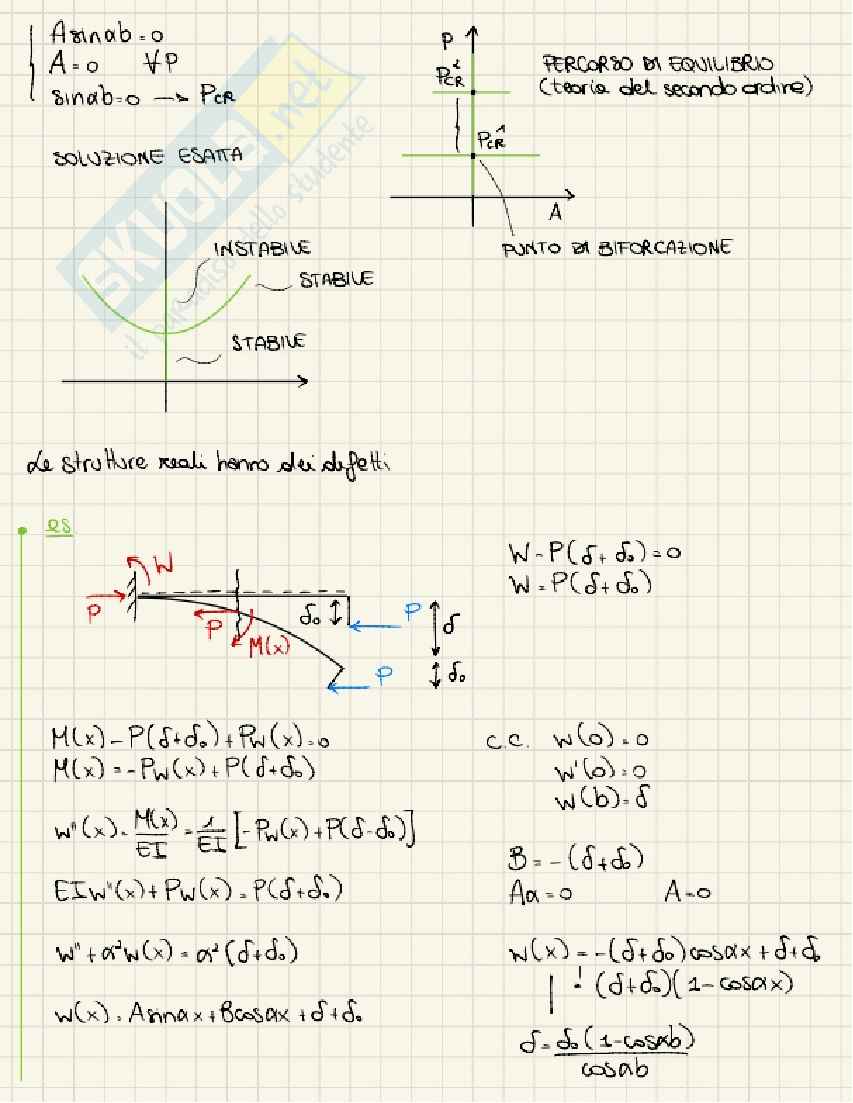 A sinαb = 0
A = 0 ∀P
sinαb = 0 → P_CR
SOLUZIONE ESATTA
P
P²_CR
P¹_CR
A
PERCORSO DI EQUILIBRIO
(teoria del secondo ordine)
PUNTO DI BIFORCAZIONE
INSTABILE
STABILE
STABILE
SKUOLA.net
il paradiso dello studente
Le strutture reali hanno dei difetti
es
W
P
P
M(x)
δ₀
P
δ
P
δ₀
W - P(δ + δ₀) = 0
W = P(δ + δ₀)
M(x) - P(δ + δ₀) + Pw(x) = 0
M(x) = -Pw(x) + P(δ + δ₀)
w''(x) = M(x)/EI = 1/EI [-Pw(x) + P(δ - δ₀)]
EIw''(x) + Pw(x) = P(δ + δ₀)
w'' + α²w(x) = α²(δ + δ₀)
w(x) = A sinαx + B cosαx + δ + δ₀
c.c. w(0) = 0
w'(0) = 0
w(b) = δ
B = -(δ + δ₀)
Aα = 0 A = 0
w(x) = -(δ + δ₀) cosαx + δ + δ₀
= (δ + δ₀)(1 - cosαx)
δ = δ₀(1 - cosαb)/cosαb